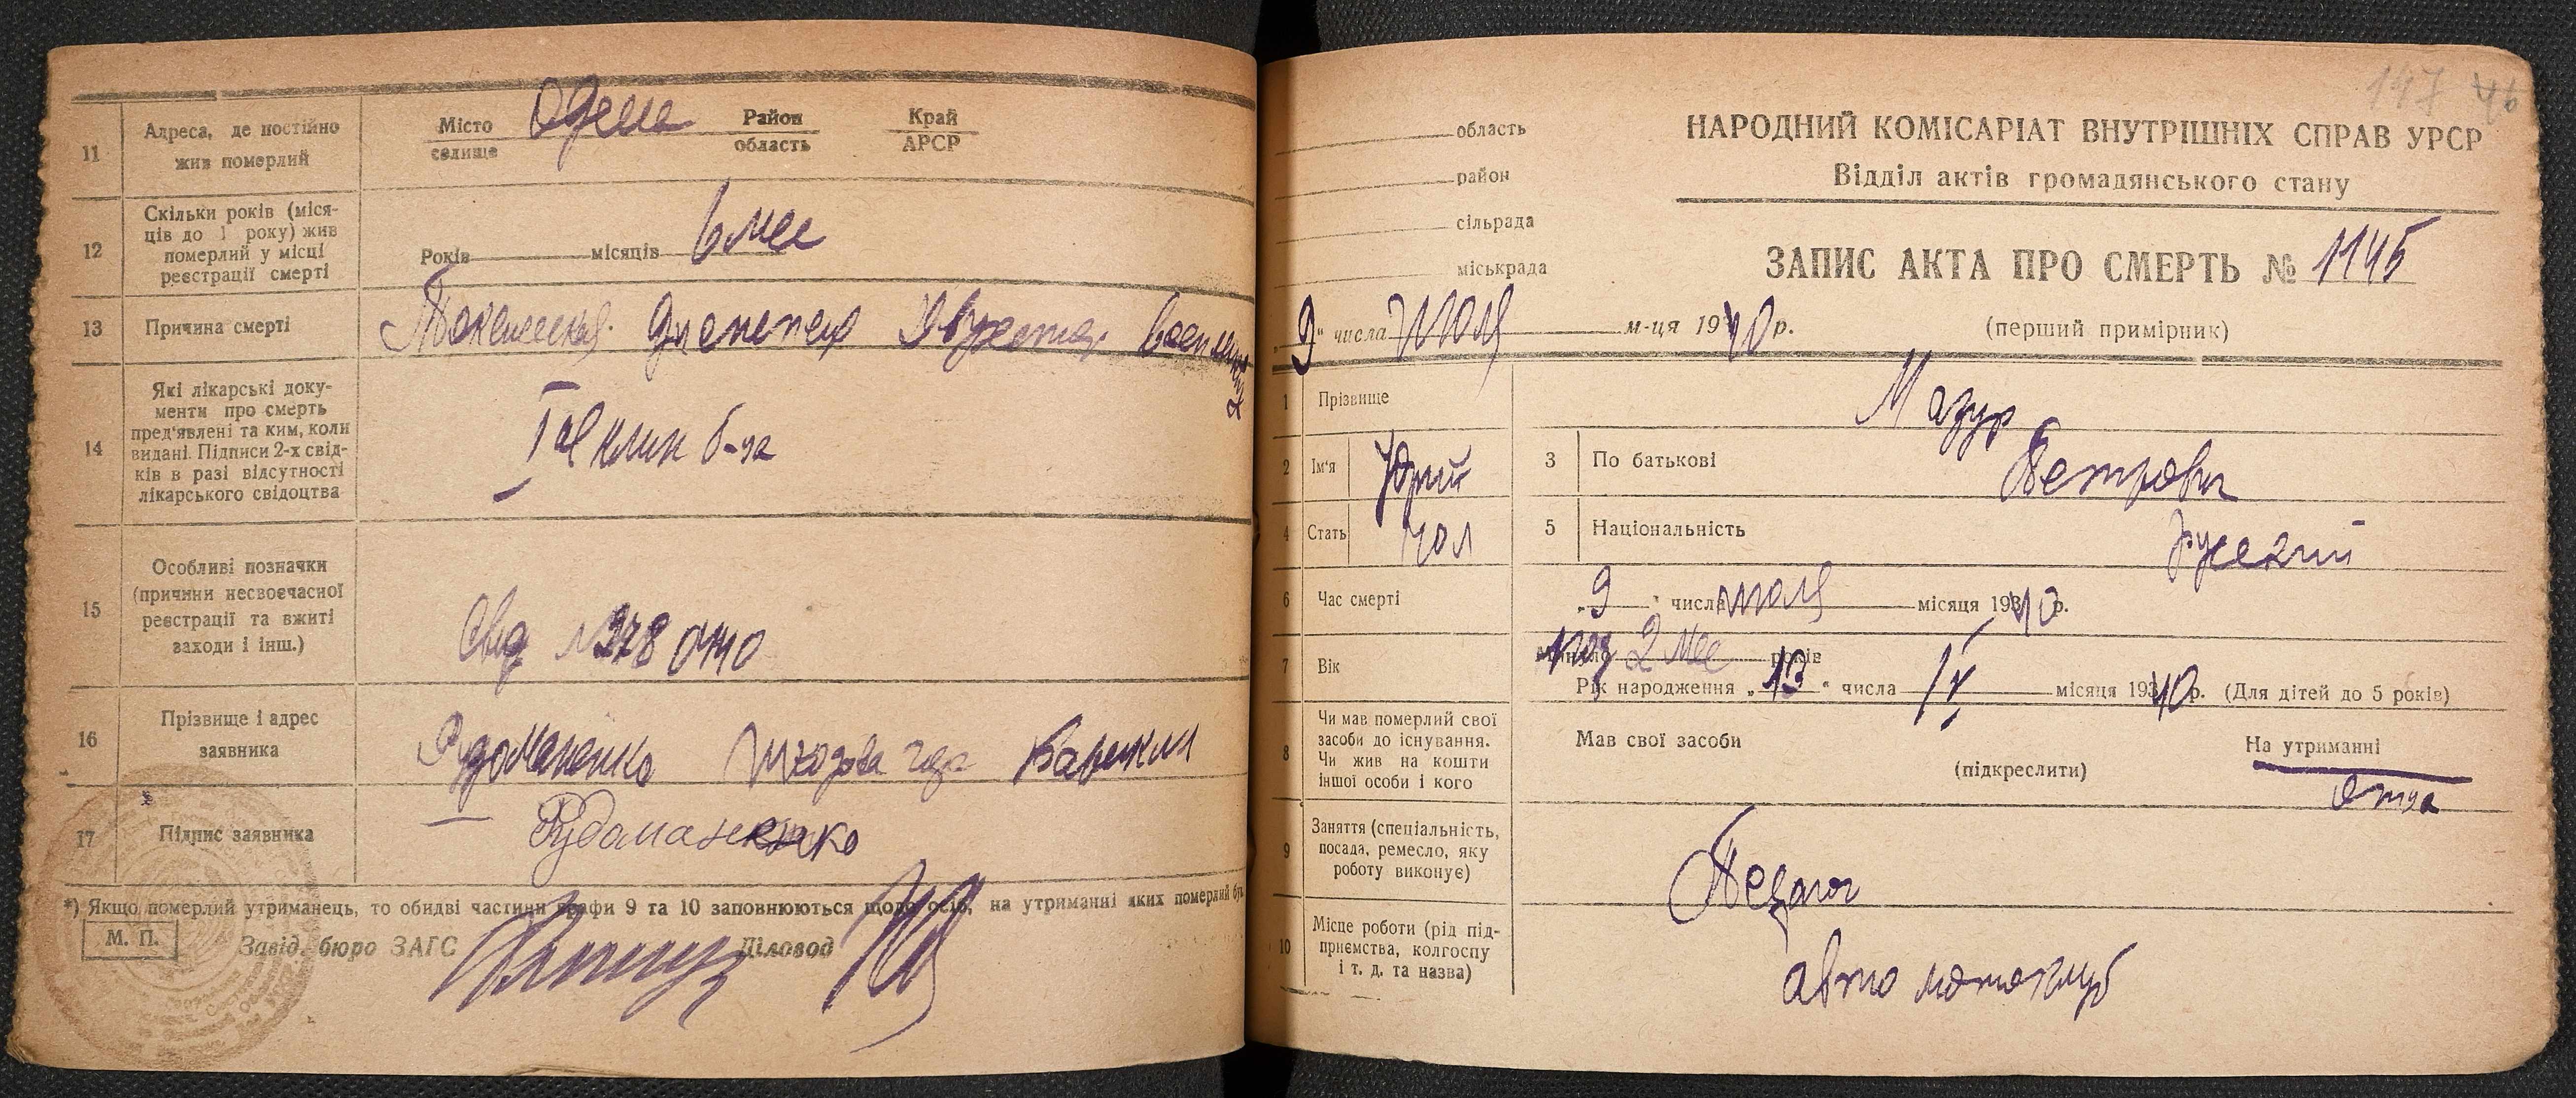 11
Адреса, де постійно
жив померлий
Місто
селище
Одесса
Район
область
Край
АРСР
12
Скільки років (міся-
ців до 1 року) жив
померлий у місці
реєстрації смерті
Років місяців 6 мес
13
Причина смерті
Токсическая Двусторон
14
Які лікарські доку-
менти про смерть
пред'явлені та ким, коли
видані. Підписи 2-х свід-
ків в разі відсутності
лікарського свідоцтва
клин б-ца
15
Особливі позначки
(причини несвоєчасної
реєстрації та вжиті
заходи і інш.)
Свид №378040
16
Прізвище і адрес
заявника
Рудоманенко
17
Підпис заявника
Рудоманенко
*) Якщо померлий утриманець, то обидві частини графи 9 та 10 заповнюються щодо осіб, на утриманні яких померлий був
М. П.
Завід. бюро ЗАГС
Діловод
147 46
область
район
сільрада
міськрада
НАРОДНИЙ КОМІСАРІАТ ВНУТРІШНІХ СПРАВ УРСР
Відділ актів громадянського стану
ЗАПИС АКТА ПРО СМЕРТЬ № 1145
„9“ числа Июля м-ця 1940 р.
(перший примірник)
1
Прізвище
Мазур
2
Ім'я
Юрий
3
По батькові
Петрович
4
Стать
чол
5
Національність
русский
6
Час смерті
„9“ числа июля місяця 1940 р.
7
Вік
2 мес років
Рік народження „13“ числа IV місяця 1940 р. (Для дітей до 5 років)
8
Чи мав померлий свої
засоби до існування.
Чи жив на кошти
іншої особи і кого
Мав свої засоби
(підкреслити)
На утриманні
отца
9
Заняття (спеціальність,
посада, ремесло, яку
роботу виконує)
Педагог
10
Місце роботи (рід під-
приємства, колгоспу
і т. д. та назва)
авто мотоклуб